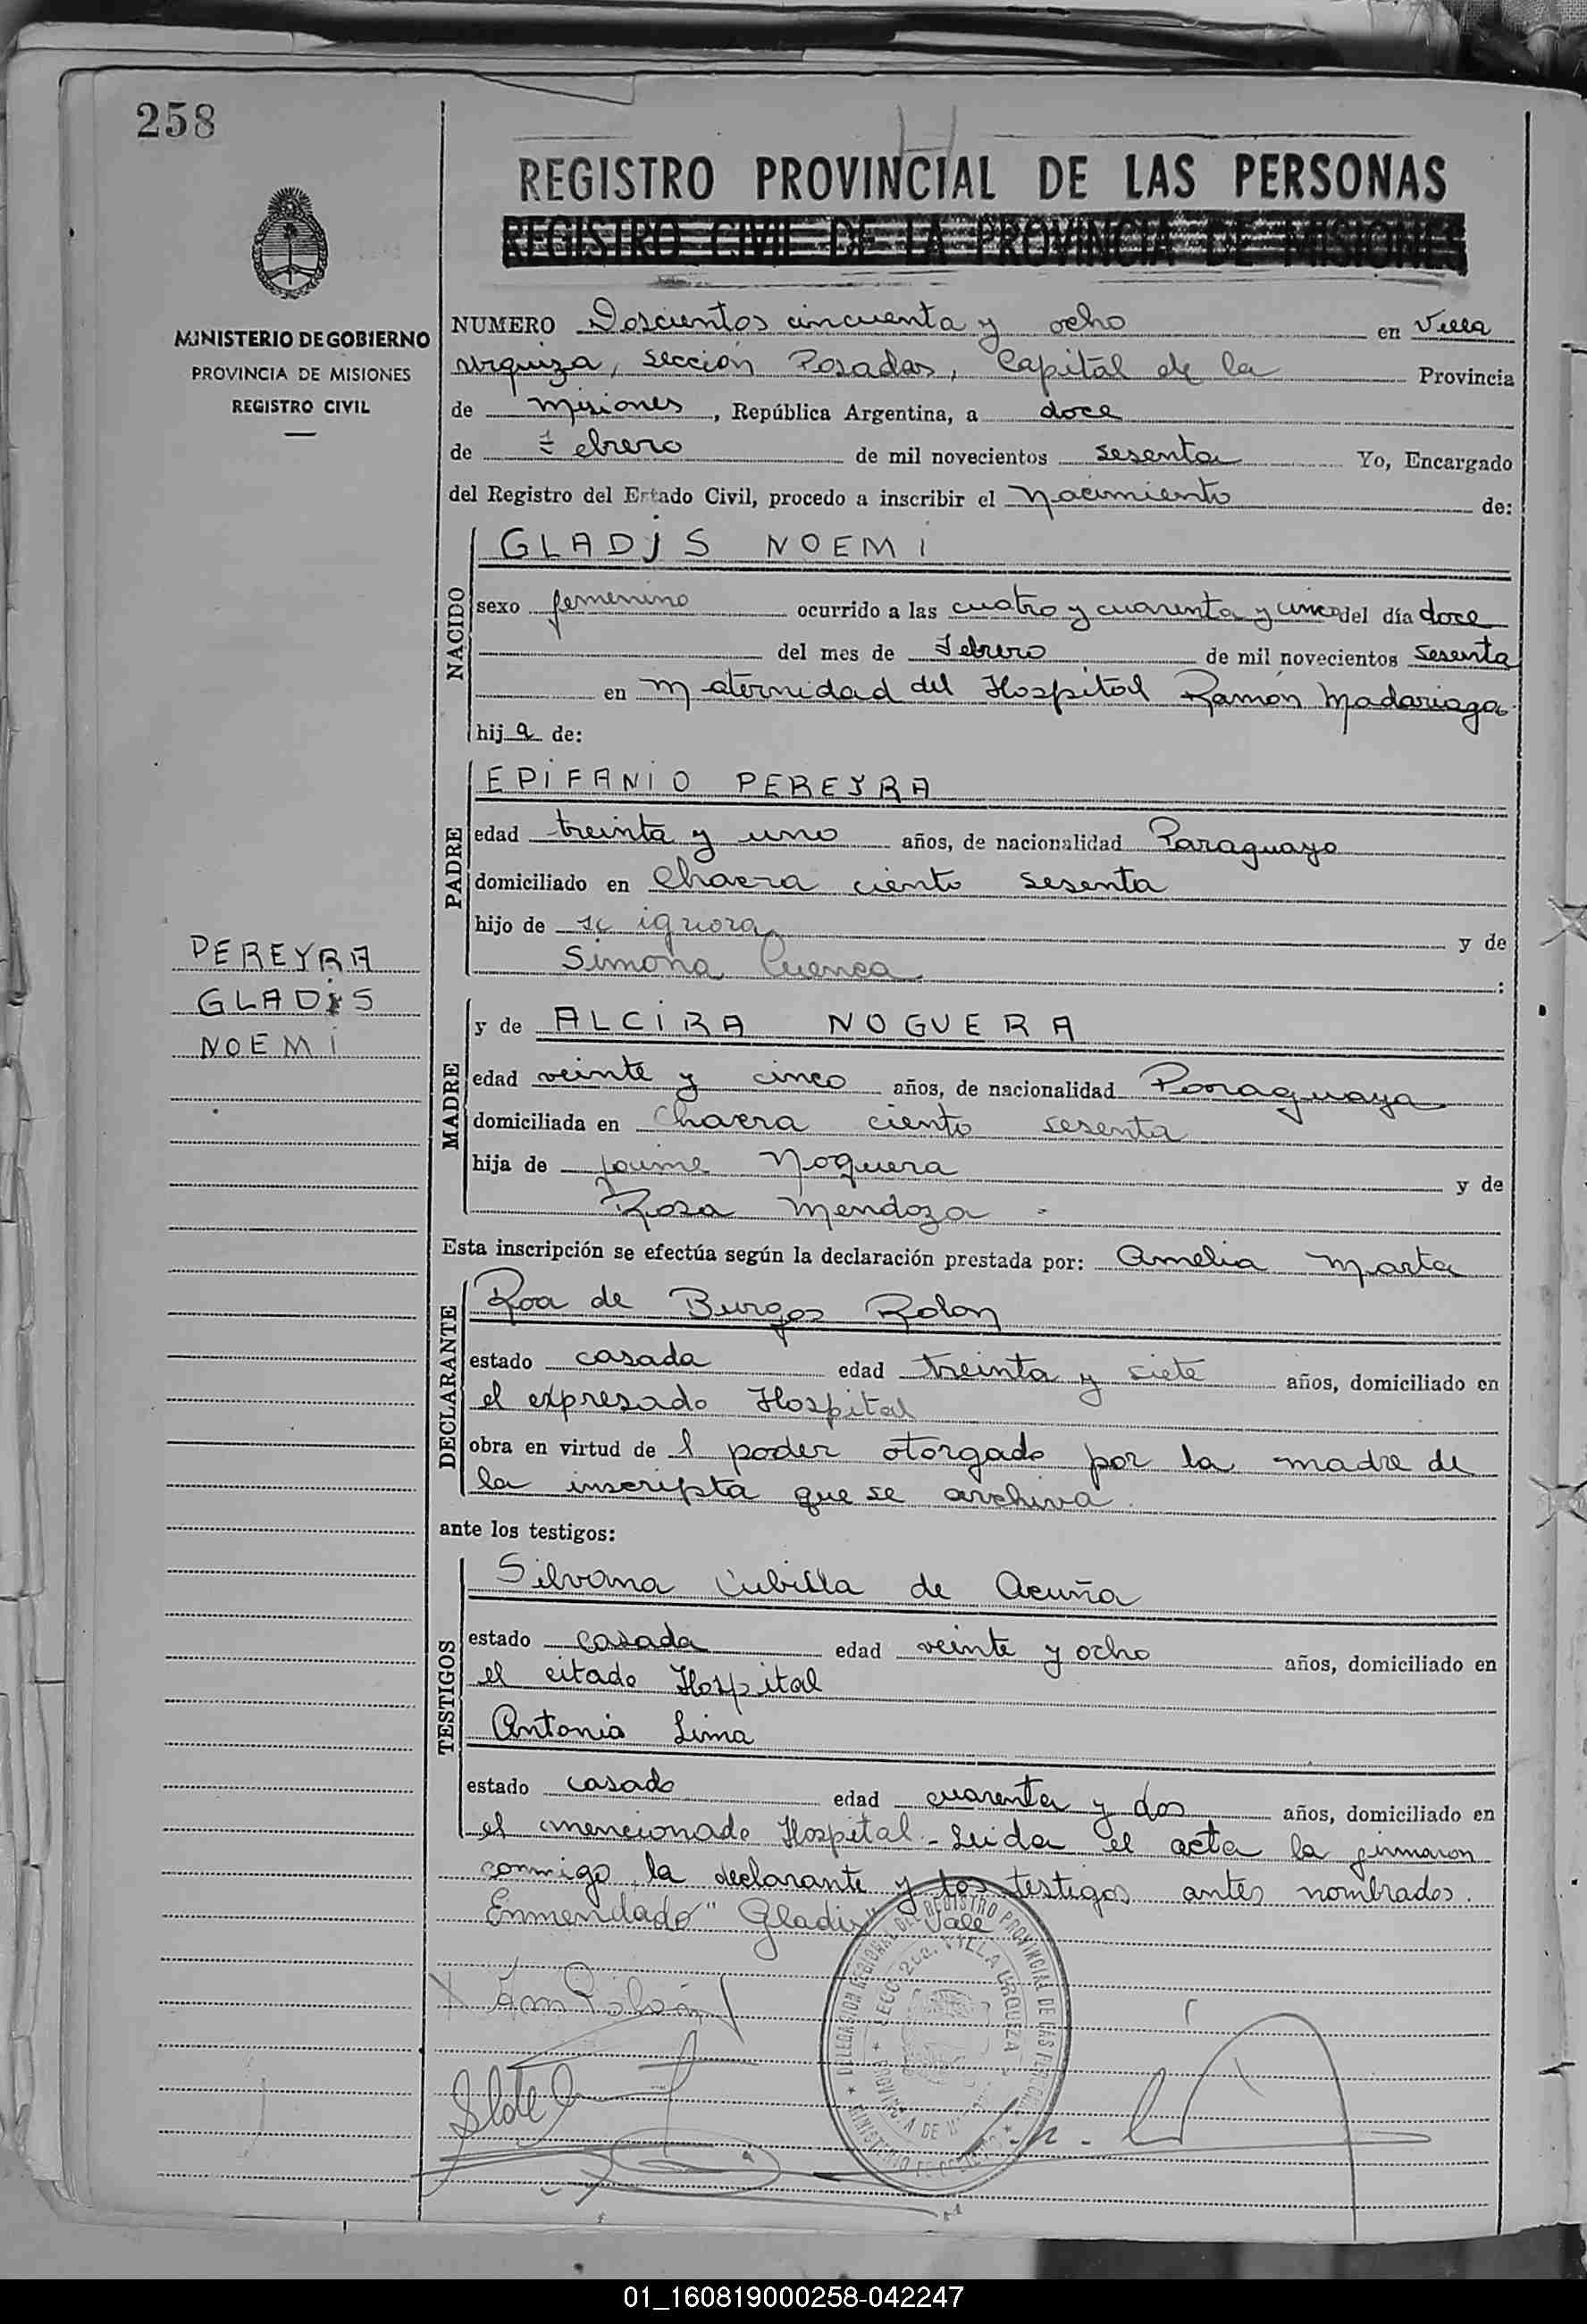 258
REGISTRO PROVINCIAL DE LAS PERSONAS
REGISTRO CIVIL DE LA PROVINCIA DE MISIONES
MINISTERIO DE GOBIERNO
PROVINCIA DE MISIONES
REGISTRO CIVIL
NUMERO Doscientos cincuenta y ocho en Villa
Urquiza, sección Posadas, Capital de la Provincia
de Misiones, República Argentina, a doce
de Febrero de mil novecientos sesenta Yo, Encargado
del Registro del Estado Civil, procedo a inscribir el Nacimiento de:
NACIDO
GLADIS NOEMI
sexo femenino ocurrido a las cuatro y cuarenta y cinco del día doce
del mes de Febrero de mil novecientos sesenta
en Maternidad del Hospital Ramón Madariaga
hija de:
PADRE
EPIFANIO PEREYRA
edad treinta y uno años, de nacionalidad Paraguayo
domiciliado en Chacra ciento sesenta
hijo de se ignora y de
Simona Cuenca :
PEREYRA
GLADIS
NOEMI
MADRE
y de ALCIRA NOGUERA
edad veinte y cinco años, de nacionalidad Paraguaya
domiciliada en Chacra ciento sesenta
hija de Jaime Noguera y de
Rosa Mendoza
Esta inscripción se efectúa según la declaración prestada por: Amelia Marta
DECLARANTE
Roa de Burgos Rolon
estado casada edad treinta y siete años, domiciliado en
el expresado Hospital
obra en virtud de l poder otorgado por la madre de
la inscripta que se archiva.
ante los testigos:
TESTIGOS
Silvana Cubilla de Acuña
estado casada edad veinte y ocho años, domiciliado en
el citado Hospital
Antonio Lima
estado casado edad cuarenta y dos años, domiciliado en
el mencionado Hospital - Leida el acta la firmaron
conmigo, la declarante y los testigos antes nombrados.
Enmendado "Gladis" Vale
DELEGACION REGIONAL DEL REGISTRO PROVINCIAL DE LAS PERSONAS
SECC. 2da. VILLA URQUIZA
MINISTERIO DE GOBIERNO
01_160819000258-042247